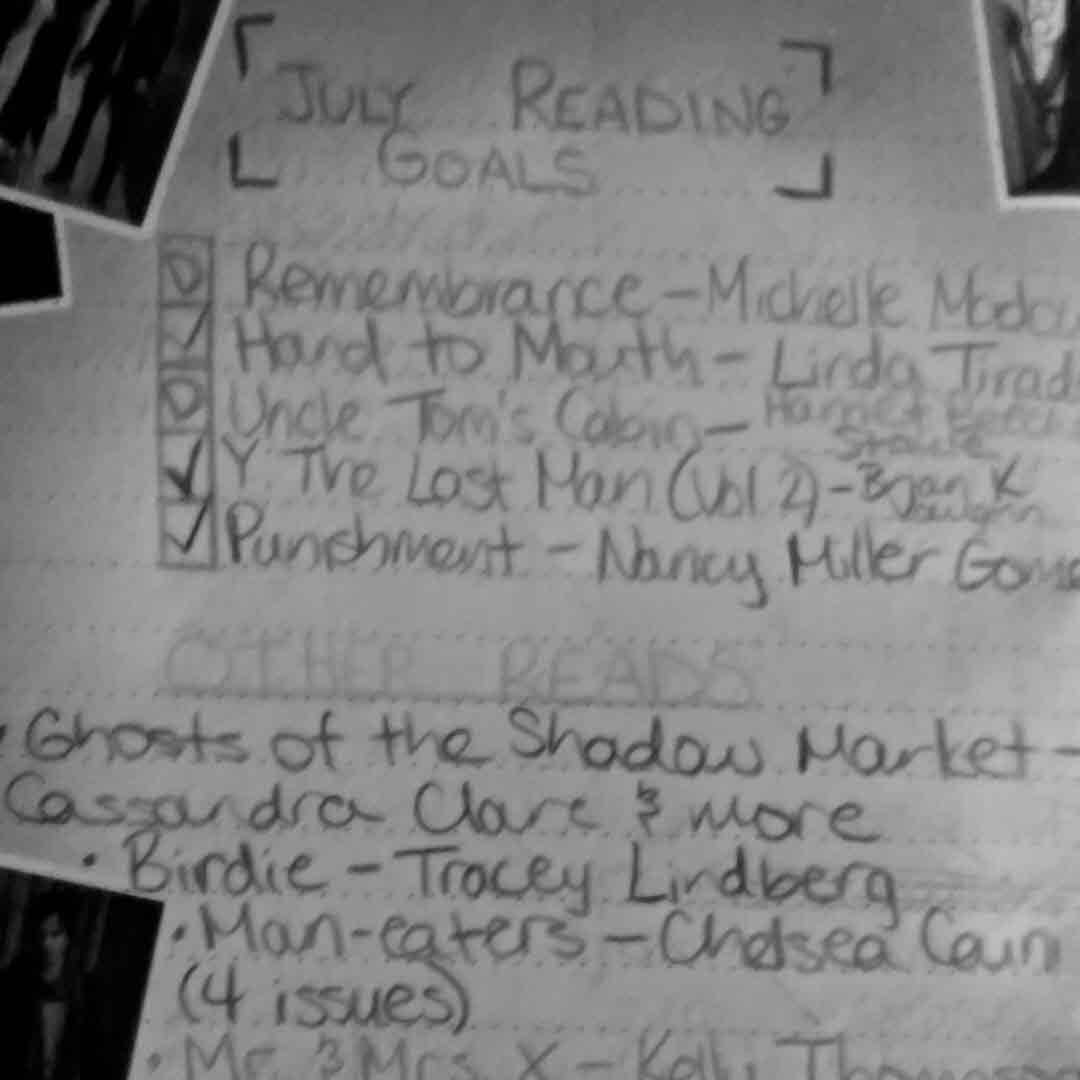 JULY READING
GOALS
D Remembrance - Michelle Mado
Hand to Mouth - Linda Tirad
D Uncle Tom's Cabin - Harriet Beech
Stowe
Y: The Last Man (Vol 2) - Brian K
Vaughn
Punishment - Nancy Miller Gome
OTHER READS
• Ghosts of the Shadow Market -
Cassandra Clare & more
• Birdie - Tracey Lindberg
• Man-eaters - Chelsea Cain
(4 issues)
• Mr. & Mrs. X - Kelly Thompson